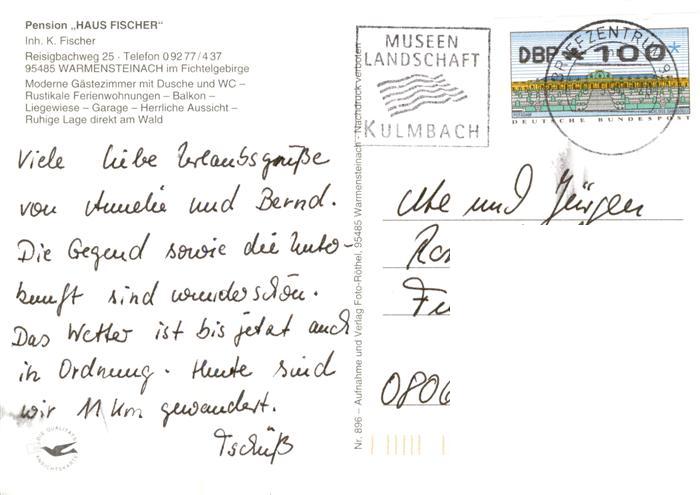 Pension „HAUS FISCHER“
Inh. K. Fischer
Reisigbachweg 25 · Telefon 0 92 77 / 4 37
95485 WARMENSTEINACH im Fichtelgebirge
Moderne Gästezimmer mit Dusche und WC –
Rustikale Ferienwohnungen – Balkon –
Liegewiese – Garage – Herrliche Aussicht –
Ruhige Lage direkt am Wald
Viele liebe Urlaubsgrüße
von Annelie und Bernd.
Die Gegend sowie die Unter-
kunft sind wunderschön.
Das Wetter ist bis jetzt auch
in Ordnung. Heute sind
wir 11 km gewandert.
Tschüß
DIE QUALITÄTS
ANSICHTSKARTE
Nr. 896 – Aufnahme und Verlag Foto-Röthel, 95485 Warmensteinach - Nachdruck verboten
MUSEEN
LANDSCHAFT
KULMBACH
BRIEFZENTRUM 95
DBP * 100 *
DEUTSCHE BUNDESPOST
Ute und Jürgen
0806